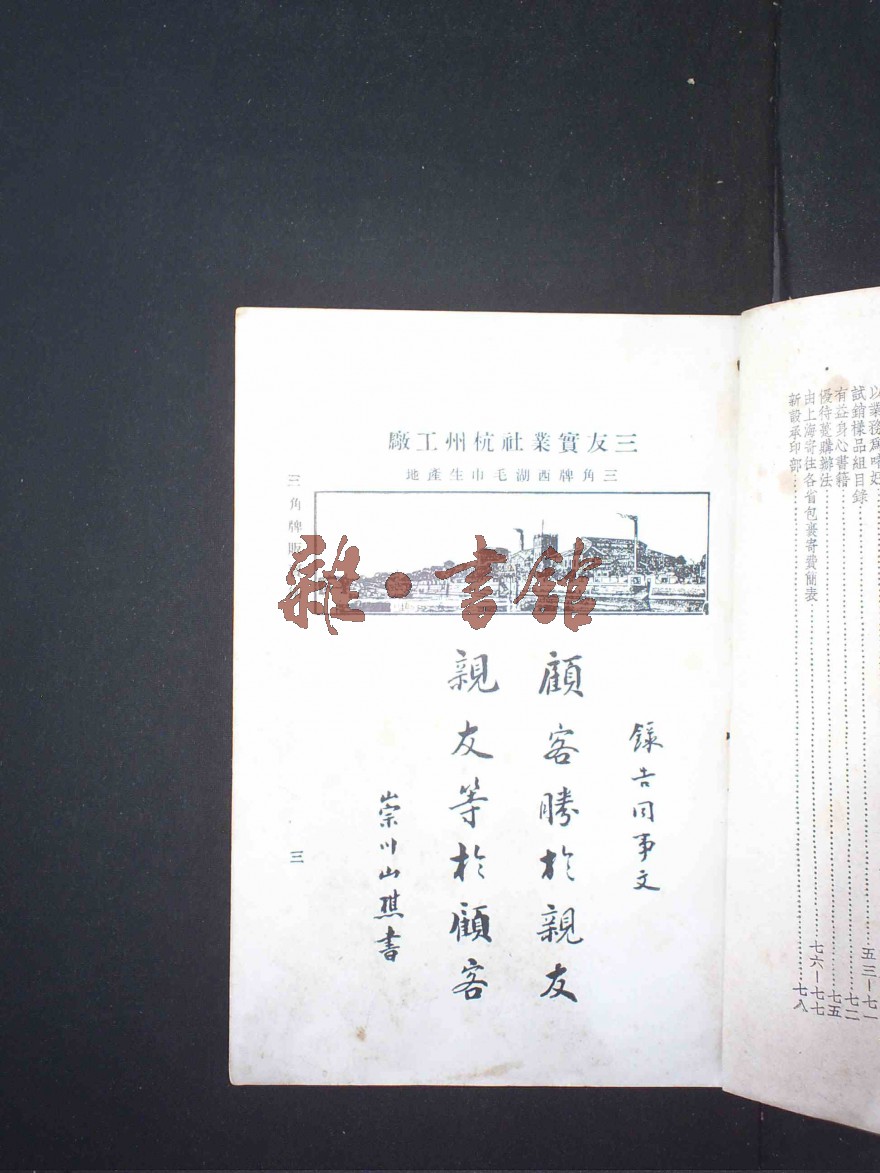 以業務為嗜好
試銷樣品組目錄……五三—七一
有益身心書籍……七二
優待薆購辦法……七五
由上海寄往各省包裹寄費簡表……七六—七七
新設承印部……七八
三友實業社杭州工廠
三角牌西湖毛巾生產地
雜·書館
錄告同事文
顧客勝於親友
親友等於顧客
崇川山 書
三角牌
三